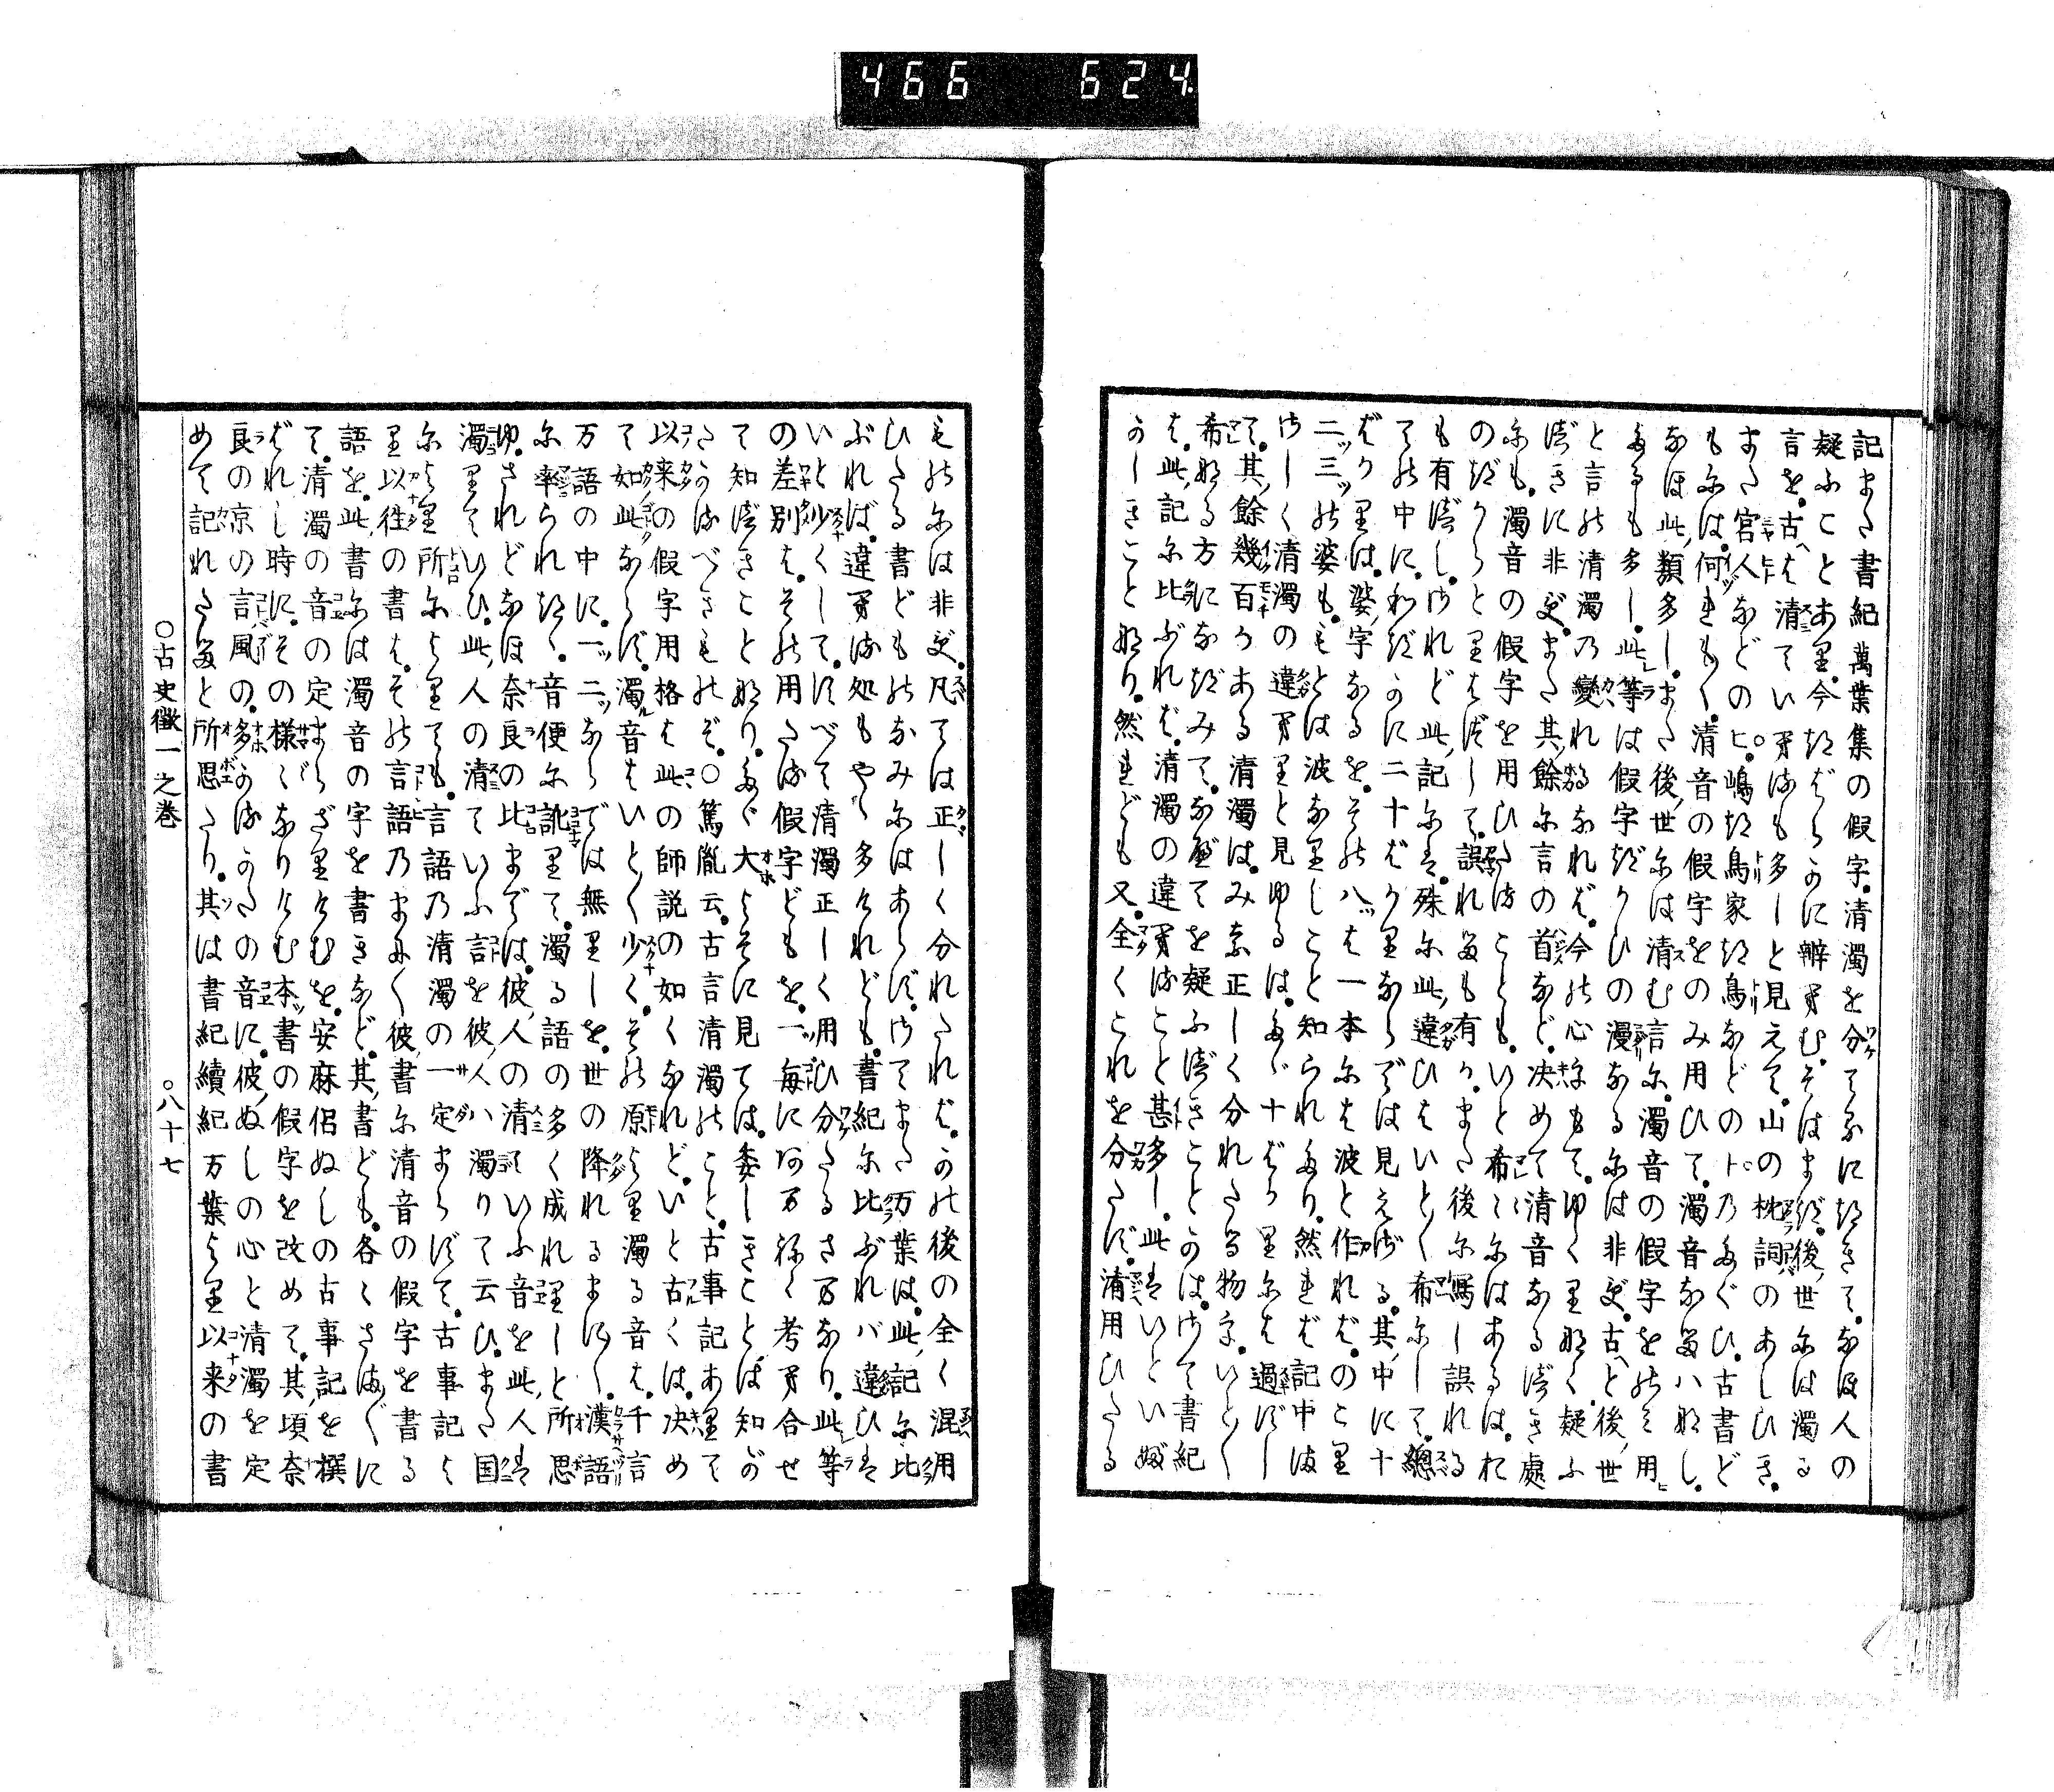 466 624
記また書紀萬葉集の假字清濁を分てよみに付きて。なほ人の
疑ふことあり。今たばらかに辨へむ。そはまづ。後世には濁る
言を。古へは清ていへるも多しと見えて。山の枕詞のあしひき。
また宮人などのヒ。嶋つ鳥家つ鳥などのト乃たぐひ。古書ど
もには。何れもく。清音の假字をのみ用ひて。濁音なるハなし。
なほ此類多し。また後世には清む言に。濁音の假字をのみ用
たるも多し。此等は假字づかひの漫なるには非ず。古へと後世
と言の清濁乃變れるなれば。今の心もて。ゆくりなく疑ふ
べきに非ず。また其餘に言の首など。決めて清音なるべき處
にも。濁音の假字を用ひたることも。いと希にはあるは。れ
のづからとりはづして。誤れるも有り。また後に寫し誤れる
も有べし。されど此記には。殊に此違ひはいとく希にして。總
ての中に。わづかに二十ばかりならでは見えざる。其中に十
ばかりは。婆字なるを。その八ツは一本には波と作れば。のこり
二ツ三ツの婆も。もとは波なりしこと知られたり。然れば記中ま
さしく清濁の違へりと見ゆるは。たゞ十ばかりには過ずし
て。其餘幾百かある清濁は。みな正しく分れたる物を。いとく
希なる方になづみて。なべてを疑ふべきことかは。さて書紀
は。此記に比ぶれば。清濁の違へること甚多し。此はいといぶ
かしきことなり。然れども又。全くこれを分たず。清用ひたる
ものには非ず。凡ては正しく分れたれば。かの後の全く混用
ひたる書どものなみにはあらず。さてまた万葉は。此記に比
ぶれば。違へる処もやゝ多けれども。書紀に比ぶればバ違ひは
いと少くして。すべて清濁正しく用ひ分たるさまなり。此等
の差別は。その用たる假字どもを。一ツ毎にあまねく考へ合せ
て知べきことなり。たゞ大よそに見ては。委しきことは知が
たかるべきものぞ。○篤胤云。古言清濁のこと。古事記ありて
以来の假字用格は此の師説の如くなれど。いと古くは。决め
て如此ならず。濁音はいとく少く。その原より濁る音は。千言
万語の中に。一ツ二ツならでは無りしを。世の降れるまにく。漢語
に率られたゝ。音便に訛りて。濁る語の多く成れりしと所思
ゆ。されどなほ奈良の比までは。彼人の清ていふ音を此人は
濁りていひ。此人の清ていふ言を彼人ハ濁りて云ひ。また国
により所によりても。言語乃清濁の一定まらずて。古事記よ
り以往の書は。その言語乃まにく彼書に清音の假字を書る
語を。此書には濁音の字を書きなど。其書ども。各くさまぐに
て。清濁の音の定まらざりけむを。安麻侶ぬしの古事記を撰
ばれし時に。その様ごなりけむ本ツ書の假字を改めて。其頃奈
良の京の言風の。多かるかたの音に。彼ぬしの心と清濁を定
めて記れたるゝと所思たり。其は書紀續紀万葉より以来の書
○古史徴一之巻 ○八十七